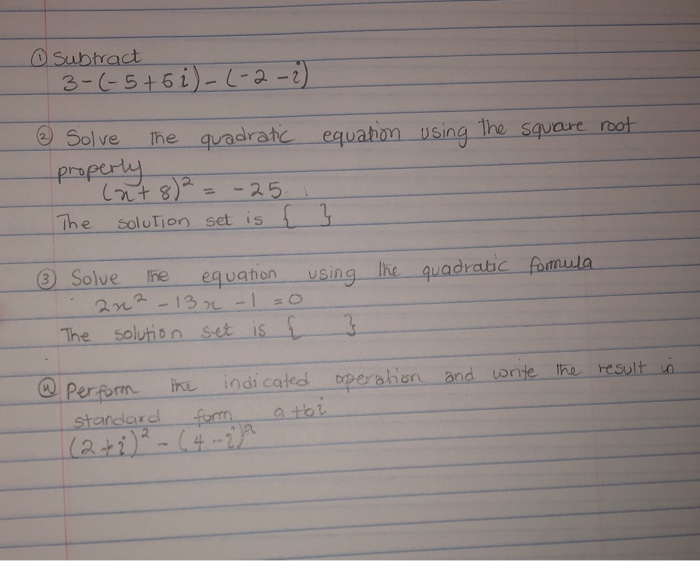 ① Subtract
3-(-5+6i)-(-2-i)
② Solve the quadratic equation using the square root
property
(x+8)² = -25
The solution set is { }
③ Solve the equation using the quadratic formula
2x² - 13x - 1 = 0
The solution set is { }
④ Perform the indicated operation and write the result in
standard form a+bi
(2+i)² - (4-i)²